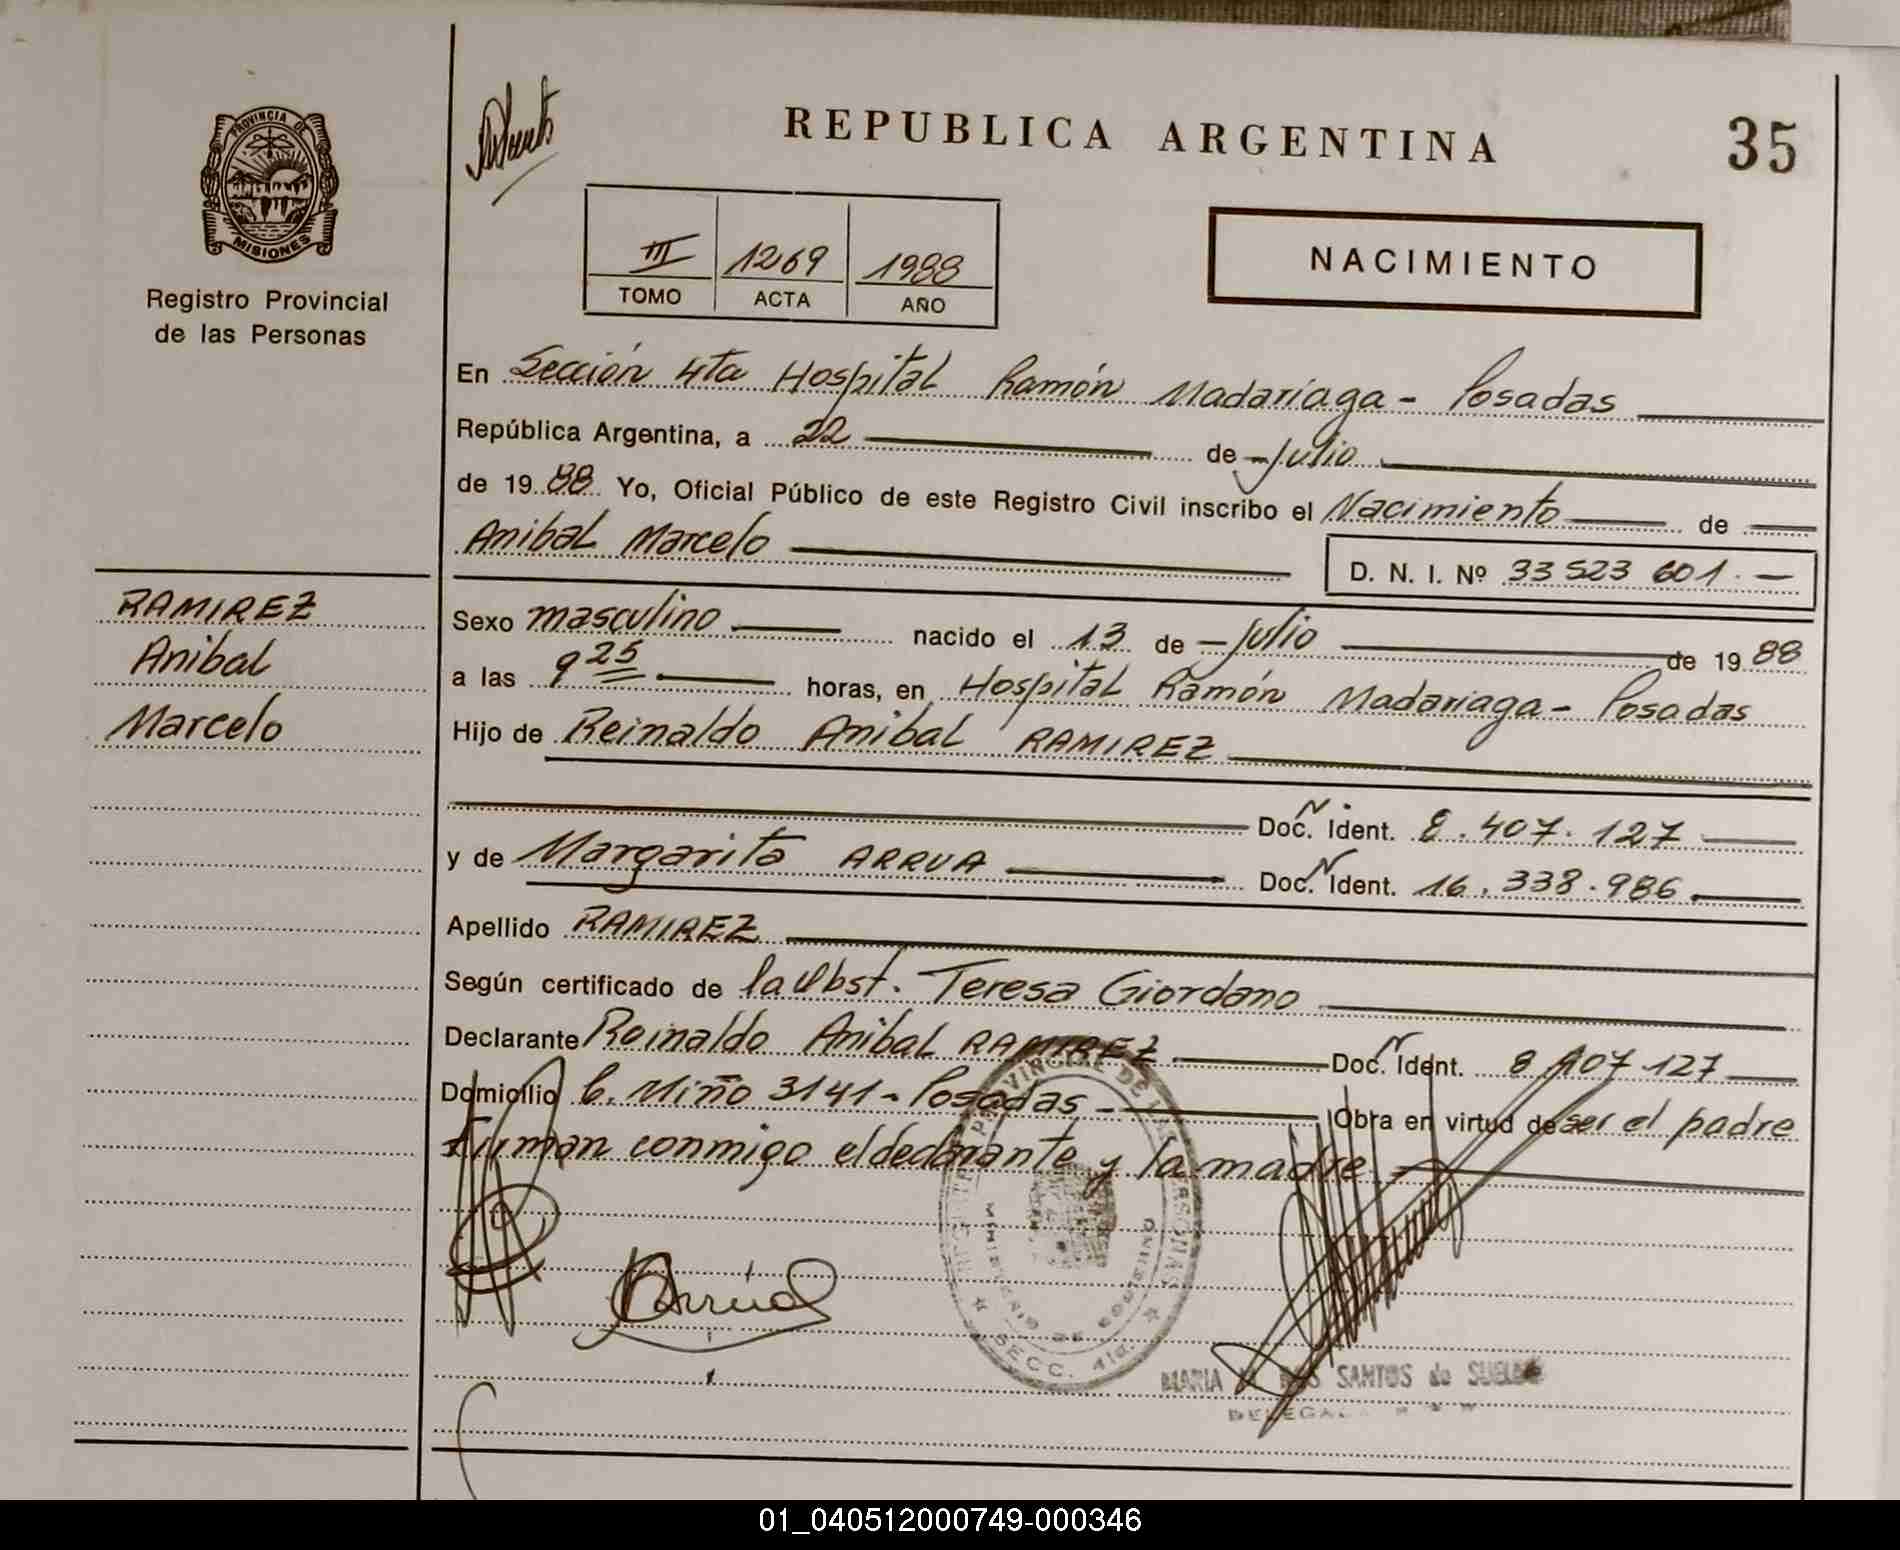 PROVINCIA DE
MISIONES
Registro Provincial
de las Personas
REPUBLICA ARGENTINA
35
III 1269 1988
TOMO ACTA AÑO
NACIMIENTO
En Sección 4ta Hospital Ramón Madariaga - Posadas
República Argentina, a 22 de Julio
de 1988 Yo, Oficial Público de este Registro Civil inscribo el Nacimiento de
Anibal Marcelo
D. N. I. Nº 33 523 601.-
RAMIREZ
Anibal
Marcelo
Sexo masculino nacido el 13 de Julio de 1988
a las 9 25 horas, en Hospital Ramón Madariaga - Posadas
Hijo de Reinaldo Anibal RAMIREZ
Doc. Ident. 8.407.127
y de Margarita ARRUA Doc. Ident. 16.338.986.
Apellido RAMIREZ
Según certificado de la Obst. Teresa Giordano
Declarante Reinaldo Anibal RAMIREZ Doc. Ident. 8 407.127
Domicilio C. Miño 3141 - Posadas - Obra en virtud de ser el padre
Firman conmigo el declarante y la madre
SECC. 4ta.
MARIA DOS SANTOS de
01_040512000749-000346